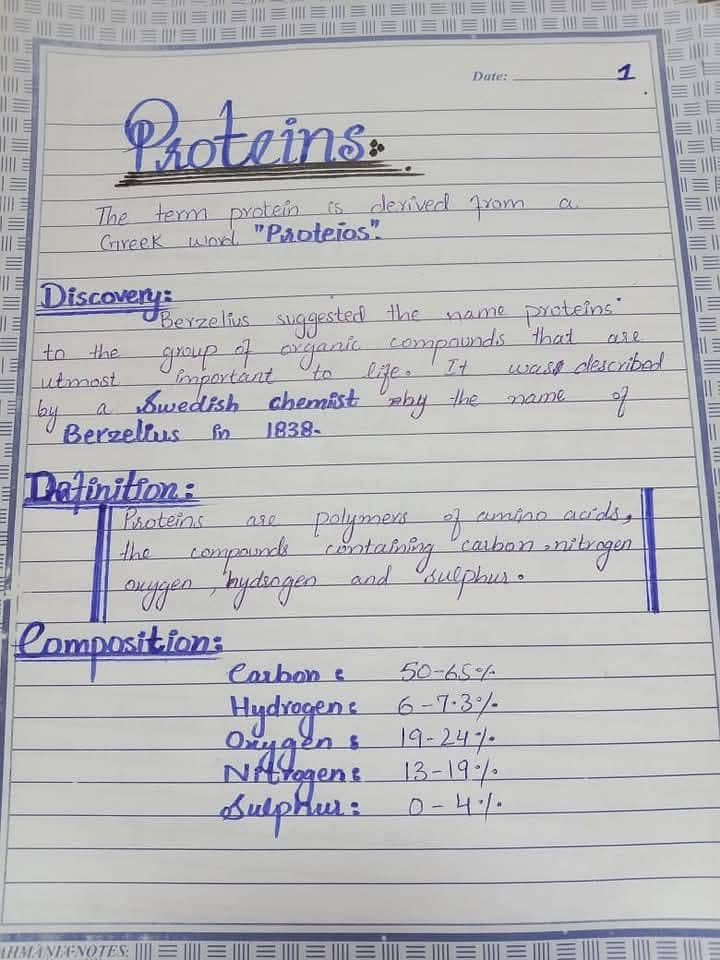 Date: 1
Proteins:
The term protein is derived from a
Greek word "Proteios".
Discovery:
Berzelius suggested the name proteins
to the group of organic compounds that are
utmost important to life. It was described
by a Swedish chemist by the name of
Berzelius in 1838.
Definition:
Proteins are polymers of amino acids,
the compounds containing carbon, nitrogen
oxygen, hydrogen and sulphur.
Composition:
Carbon : 50-65%
Hydrogen : 6-7.3%
Oxygen : 19-24%
Nitrogen : 13-19%
Sulphur : 0-4%
AHMANIA NOTES